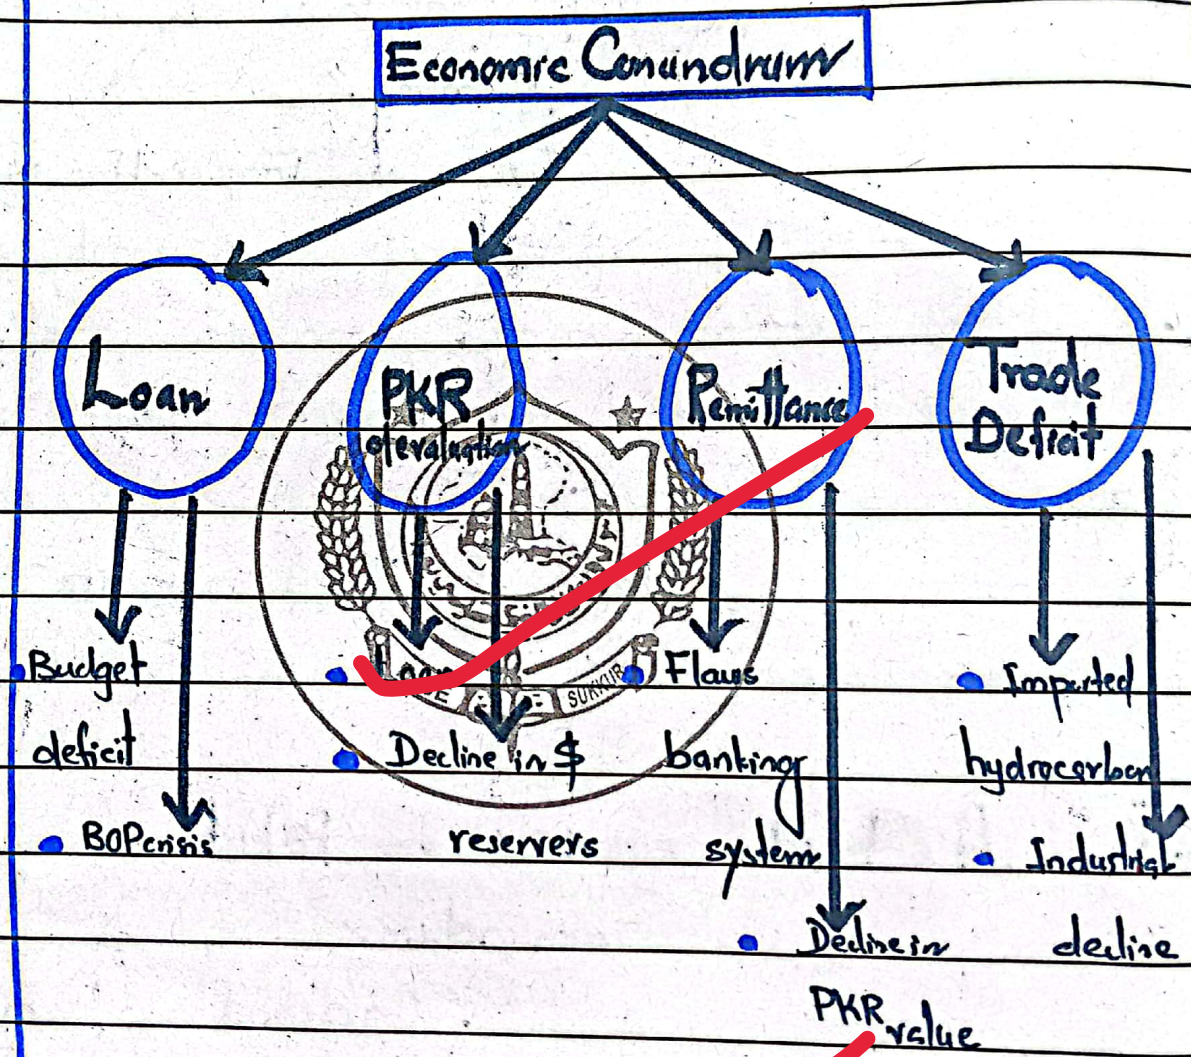 Economic Conundrum
Loan
PKR
devaluation
Remittance
Trade
Deficit
Budget
deficit
BOP crisis
Loan
Decline in $
reservers
Flaws
banking
system
Decline in
PKR value
Imported
hydrocarbon
Industrial
decline
SUKKUR